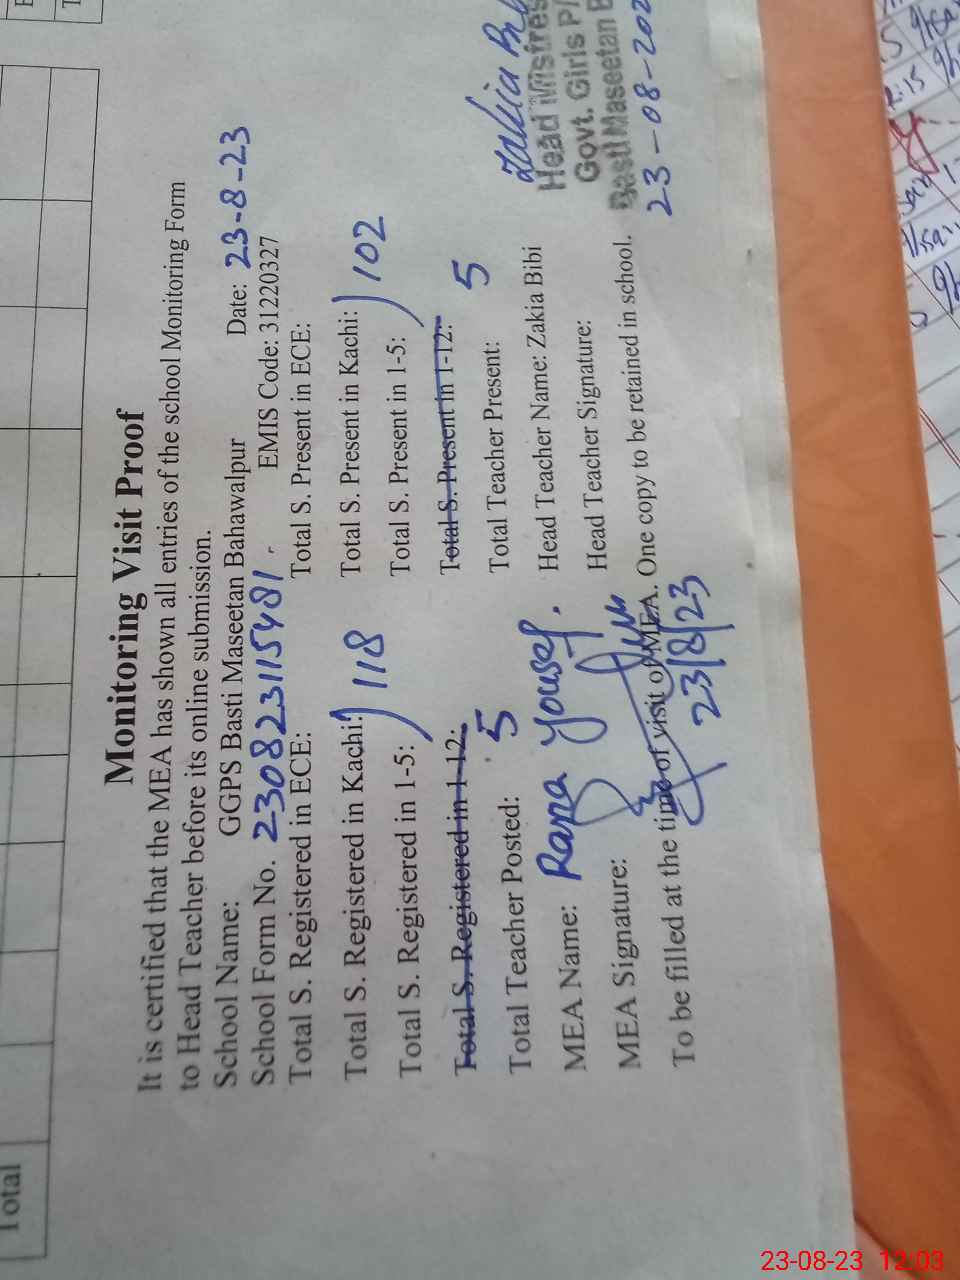 Total
Monitoring Visit Proof
It is certified that the MEA has shown all entries of the school Monitoring Form
to Head Teacher before its online submission.
School Name: GGPS Basti Maseetan Bahawalpur Date: 23-8-23
School Form No. 230823115481 EMIS Code: 31220327
Total S. Registered in ECE: Total S. Present in ECE:
Total S. Registered in Kachi: 118 Total S. Present in Kachi: 102
Total S. Registered in 1-5: Total S. Present in 1-5:
Total S. Registered in 1-12: Total S. Present in 1-12:
Total Teacher Posted: 5 Total Teacher Present: 5
MEA Name: Rana Yousef. Head Teacher Name: Zakia Bibi
MEA Signature: Head Teacher Signature:
To be filled at the time of visit of MEA. One copy to be retained in school.
23/8/23
Zakia
Head Mistres
Govt. Girls P/
Basti Maseetan B
23-08-202
23-08-23 12:03